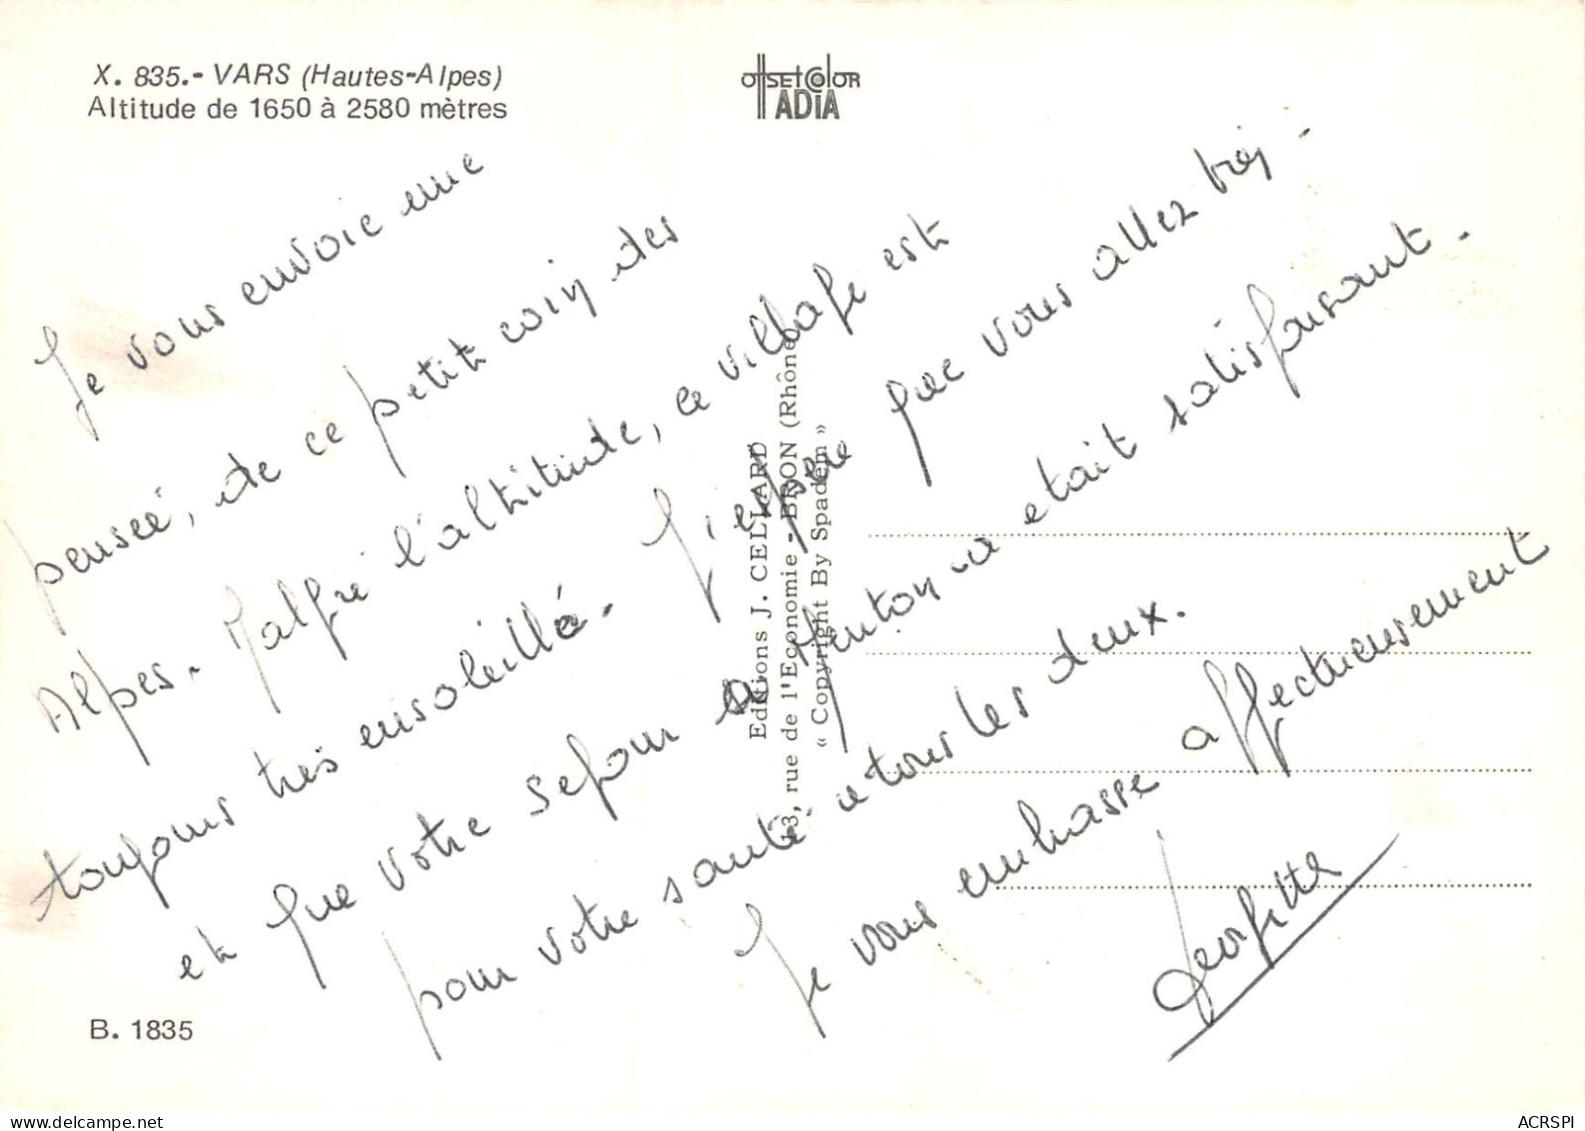 X. 835.- VARS (Hautes-Alpes)
Altitude de 1650 à 2580 mètres
OffSETCOlOR
ADiA
Je vous envoie une
pensée, de ce petit coin des
Alpes. Malgré l'altitude, ce village est
toujours très ensoleillé. J'espère que vous allez
et que votre sejour a Menton a etait satisfaisant.
pour votre santé a tous les deux.
Je vous embrasse affectueusement
Georgette
Editions J. CELLARD
rue de l'Economie - BRON (Rhône)
« Copyright By Spadem »
B. 1835
ACRSPI